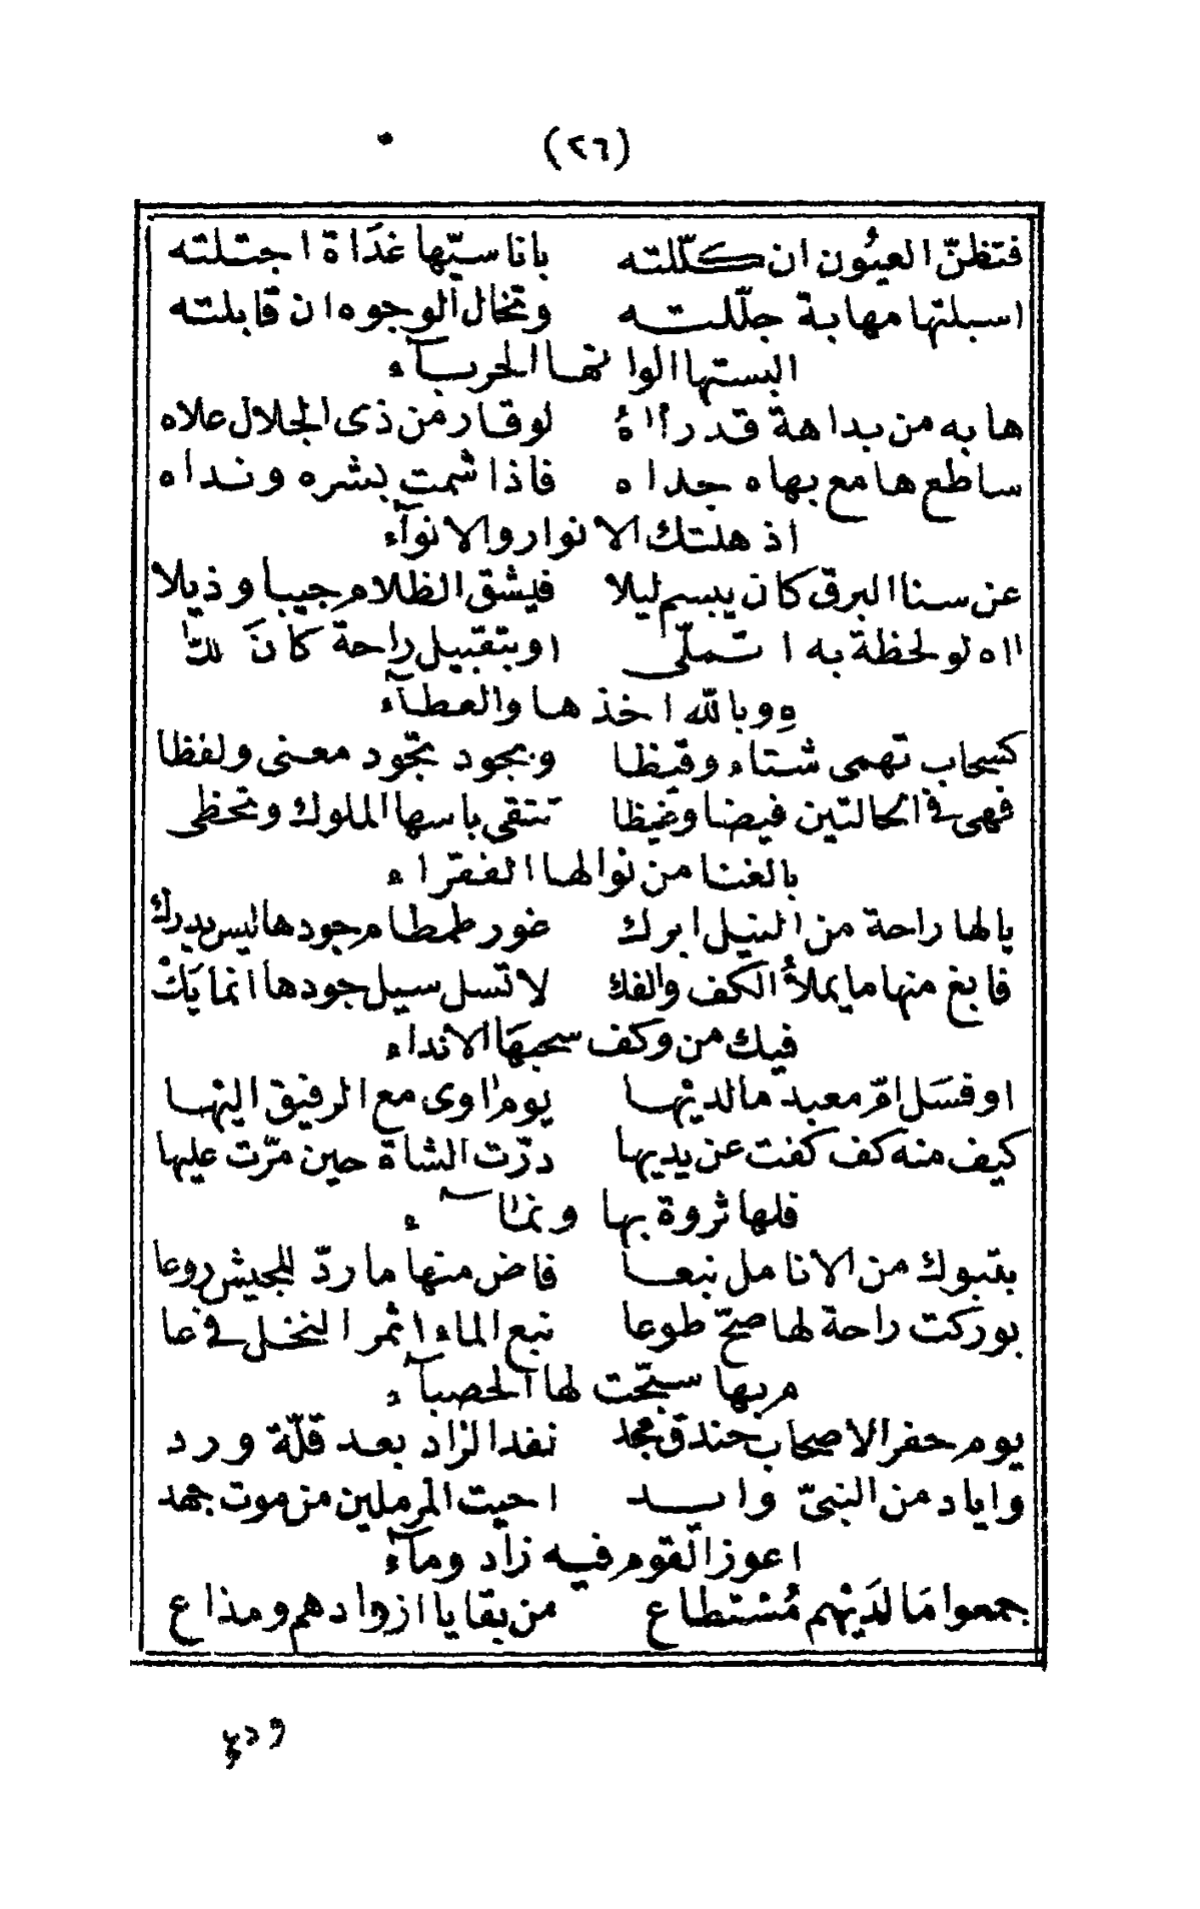 (٢٦)
فتظنّ العيُون ان كلّلته باناسيّها غدَاة اجتلته
اسبلتها مهابة جلّلته وتخال الوجوه ان قابلته
البستها الوانها الحربآء
هابه من بداهة قدرأاهُ لوقار من ذى الجلال علاه
ساطعها مع بهاه جداه فاذا شمت بشره ونداه
اذهلتك الانوار والانوآء
عن سنا البرق كان يبسم ليلا فيشق الظلام جيبا وذيلا
ااه لو لحظة به اتملّى او بتقبيل راحة كانَ للّٰ
هِ وبالله اخذها والعطآء
كسحاب تهمى شتاء وقيظا وبجود تجّود معنى ولفظا
فهى فى الحالتين فيضا وغيظا تتقى باسها الملوك وتحظى
بالغنا من نوالها الفقراء
يالها راحة من النيل ابرك غور طمطام جودها ليس يدرك
فابغ منها ما يملأُ الكف والفك لا تسل سيل جودها انما يَكْ
فيك من وكف سحبهَا الانداء
او فسَل امّ معبد ما لديْها يوم اوى مع الرفيق اليْها
كيف منه كف كفت عن يديها درّت الشاة حين مرّت عليها
فلها ثروة بها ونمآء
بتبوك من الانامل نبعا فاض منها ما ردّ للجيش روعا
بوركت راحة لها صحّ طوعا نبع الماء اثمر النخل فى عا
م بها سبّحت لها الحصبآء
يوم حفر الاصحاب خندق مجد نفد الزاد بعد قلّة ورد
واياد من النبىّ وايد احيت المرملين من موت جهد
اعوز القوم فيه زاد ومآء
جمعوا مَا لدَيْهم مُسْتطاع من بقايا ازوادهم ومذاع